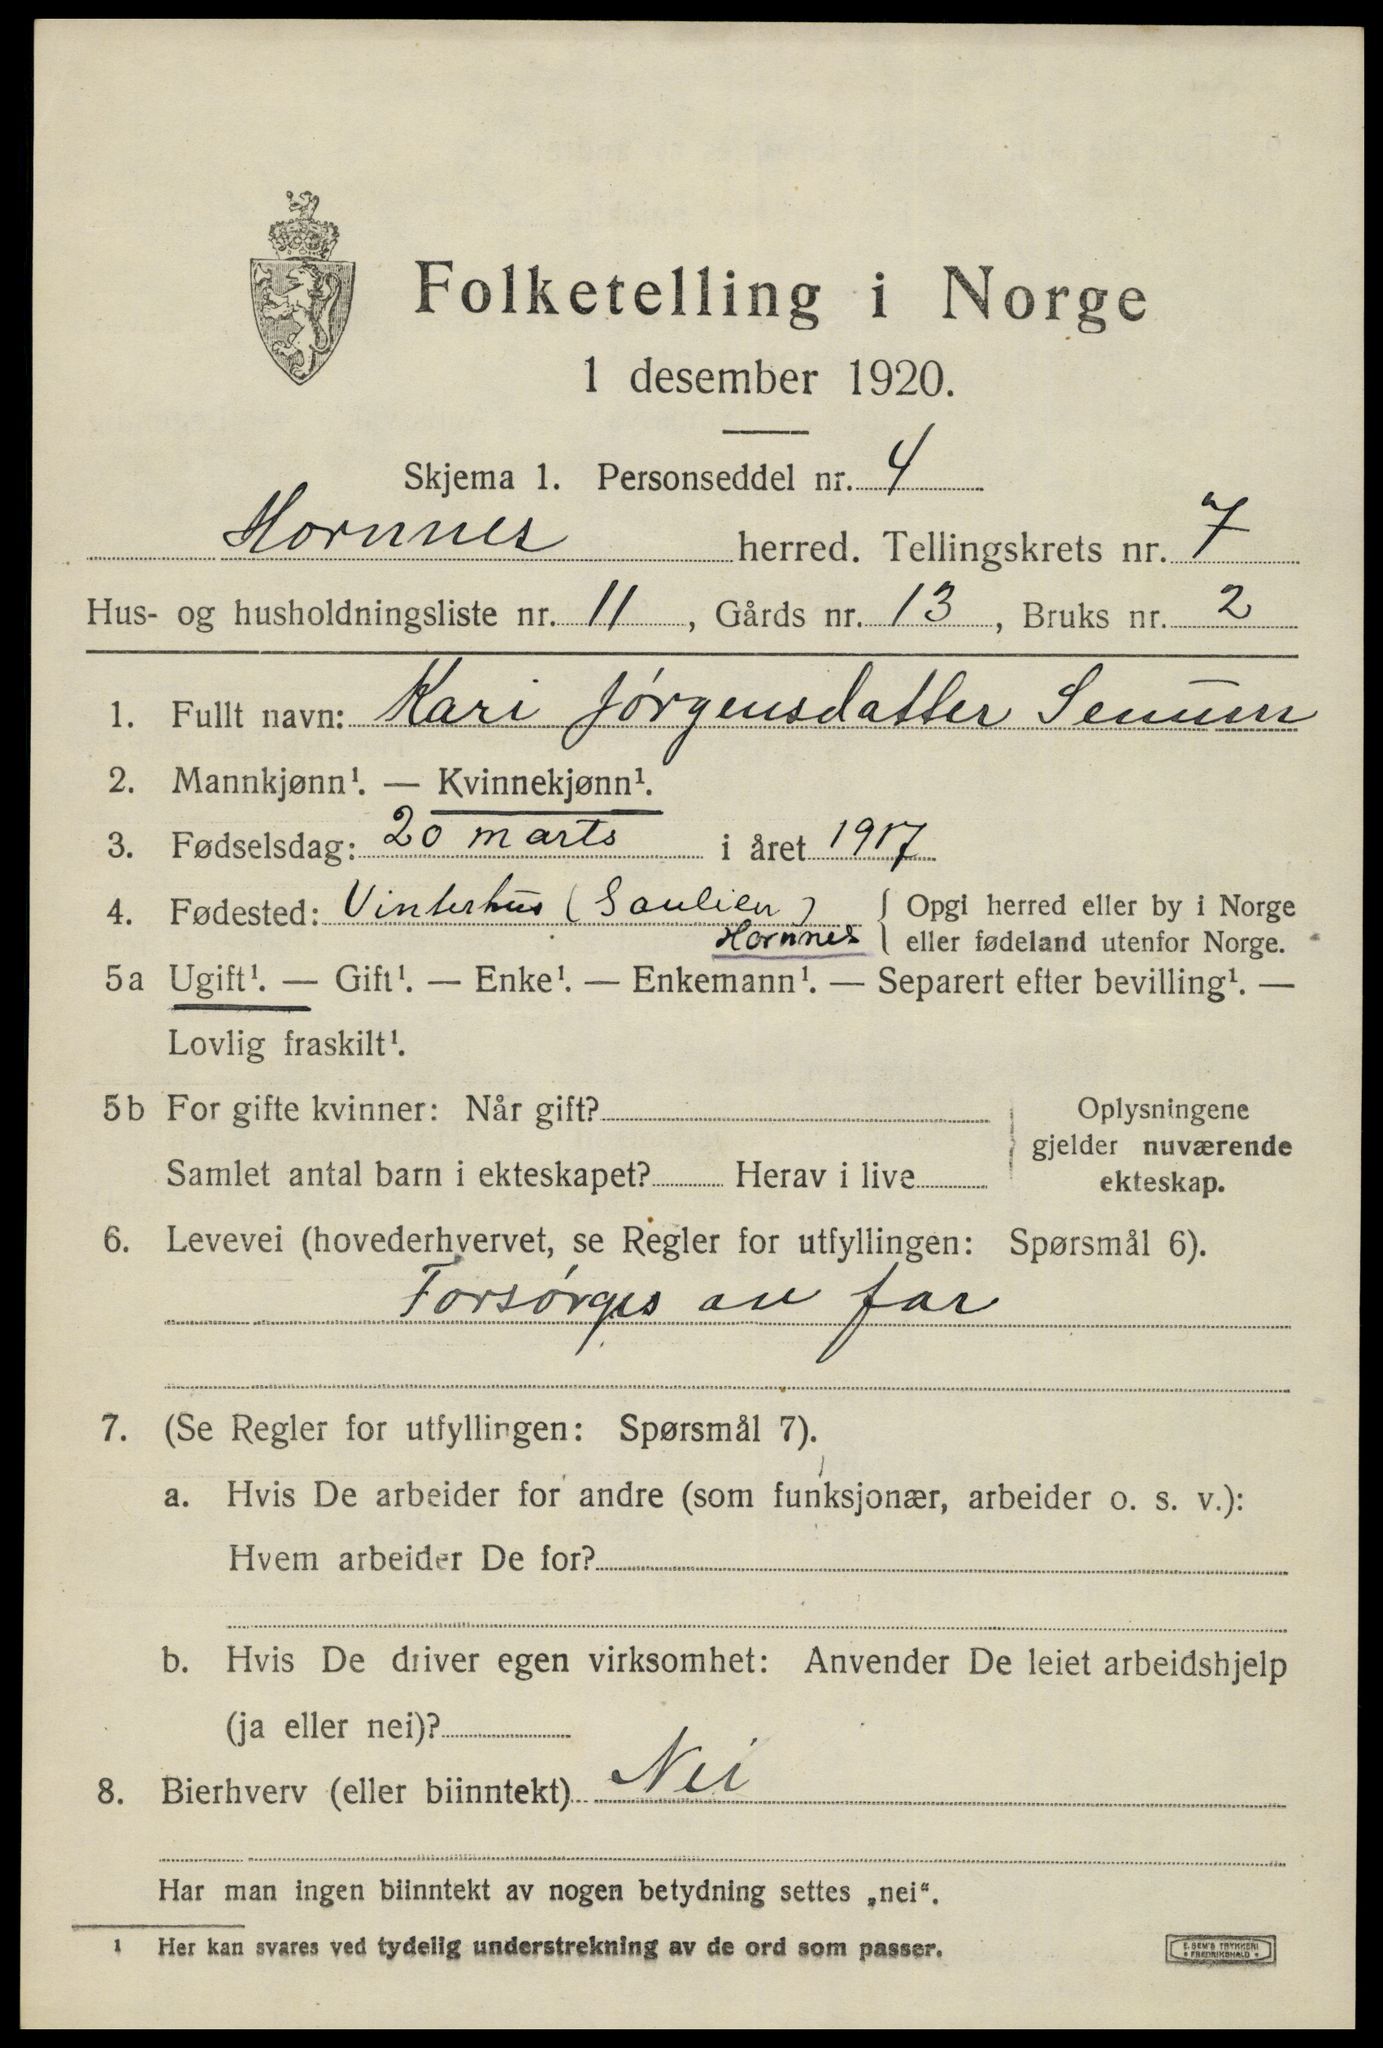 Folketelling i Norge
1 desember 1920.
Skjema 1. Personseddel nr. 4
Hornnes herred. Tellingskrets nr. 7
Hus- og husholdningsliste nr. 11, Gårds nr. 13, Bruks nr. 2
1. Fullt navn: Kari Jørgensdatter Senum
2. Mannkjønn¹. — Kvinnekjønn¹.
3. Fødselsdag: 20 marts i året 1917
4. Fødested: Vinterhus (Saulien) { Opgi herred eller by i Norge
Hornnes eller fødeland utenfor Norge.
5a Ugift¹. — Gift¹. — Enke¹. — Enkemann¹. — Separert efter bevilling¹. —
Lovlig fraskilt¹.
5b For gifte kvinner: Når gift? Oplysningene
gjelder nuværende
Samlet antal barn i ekteskapet? Herav i live ekteskap.
6. Levevei (hovederhvervet, se Regler for utfyllingen: Spørsmål 6).
Forsørges av far
7. (Se Regler for utfyllingen: Spørsmål 7).
a. Hvis De arbeider for andre (som funksjonær, arbeider o. s. v.):
Hvem arbeider De for?
b. Hvis De driver egen virksomhet: Anvender De leiet arbeidshjelp
(ja eller nei)?
8. Bierhverv (eller biinntekt) Nei
Har man ingen biinntekt av nogen betydning settes „nei“.
1 Her kan svares ved tydelig understrekning av de ord som passer.
E. SEM'S TRYKKERI
FREDRIKSHALD